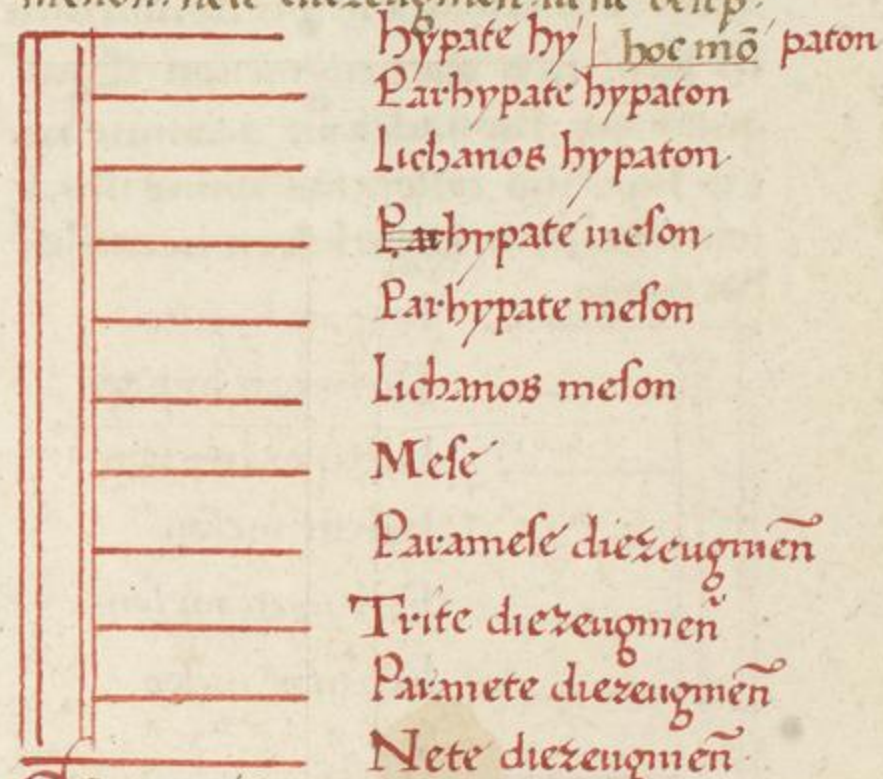 hypate hy | hoc mō paton
Parhypate hypaton
Lichanos hypaton
Parhypate meson
Parhypate meson
Lichanos meson
Mese
Paramese diezeugmen̄
Trite diezeugmen̄
Paranete diezeugmen̄
Nete diezeugmen̄